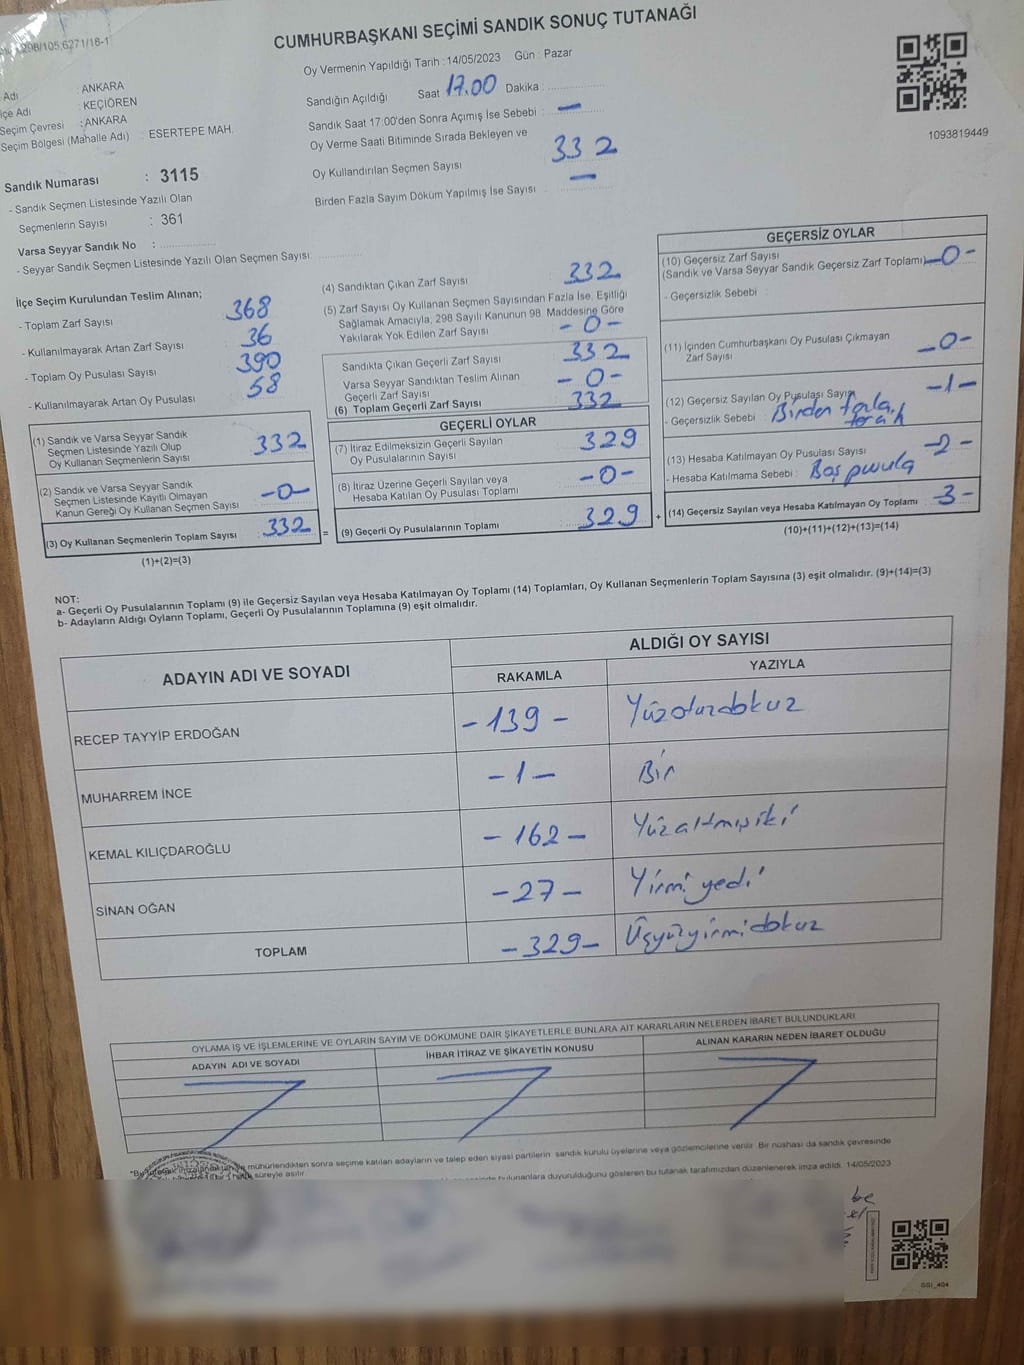 298/105,6271/16-1
CUMHURBAŞKANI SEÇİMİ SANDIK SONUÇ TUTANAĞI
Adı : ANKARA
İlçe Adı : KEÇİÖREN
Seçim Çevresi : ANKARA
Seçim Bölgesi (Mahalle Adı) : ESERTEPE MAH.
Sandık Numarası : 3115
- Sandık Seçmen Listesinde Yazılı Olan
Seçmenlerin Sayısı : 361
Varsa Seyyar Sandık No :
- Seyyar Sandık Seçmen Listesinde Yazılı Olan Seçmen Sayısı:
Oy Vermenin Yapıldığı Tarih : 14/05/2023 Gün : Pazar
Sandığın Açıldığı Saat 17.00 Dakika :
Sandık Saat 17:00'den Sonra Açımış İse Sebebi : —
Oy Verme Saati Bitiminde Sırada Bekleyen ve
Oy Kullandırılan Seçmen Sayısı 332
Birden Fazla Sayım Döküm Yapılmış İse Sayısı : —
1093819449
İlçe Seçim Kurulundan Teslim Alınan;
- Toplam Zarf Sayısı 368
- Kullanılmayarak Artan Zarf Sayısı 36
- Toplam Oy Pusulası Sayısı 390
- Kullanılmayarak Artan Oy Pusulası 58
(1) Sandık ve Varsa Seyyar Sandık
Seçmen Listesinde Yazılı Olup
Oy Kullanan Seçmenlerin Sayısı 332
(2) Sandık ve Varsa Seyyar Sandık
Seçmen Listesinde Kayıtlı Olmayan
Kanun Gereği Oy Kullanan Seçmen Sayısı -0-
(3) Oy Kullanan Seçmenlerin Toplam Sayısı 332
(1)+(2)=(3)
=
(4) Sandıktan Çıkan Zarf Sayısı 332
(5) Zarf Sayısı Oy Kullanan Seçmen Sayısından Fazla İse, Eşitliği
Sağlamak Amacıyla; 298 Sayılı Kanunun 98. Maddesine Göre
Yakılarak Yok Edilen Zarf Sayısı -0-
Sandıkta Çıkan Geçerli Zarf Sayısı 332
Varsa Seyyar Sandıktan Teslim Alınan
Geçerli Zarf Sayısı -0-
(6) Toplam Geçerli Zarf Sayısı 332
GEÇERLİ OYLAR
(7) İtiraz Edilmeksizin Geçerli Sayılan
Oy Pusulasının Sayısı 329
(8) İtiraz Üzerine Geçerli Sayılan veya
Hesaba Katılan Oy Pusulası Toplamı -0-
(9) Geçerli Oy Pusulalarının Toplamı 329
+
GEÇERSİZ OYLAR
(10) Geçersiz Zarf Sayısı
(Sandık ve Varsa Seyyar Sandık Geçersiz Zarf Toplamı) -0-
- Geçersizlik Sebebi :
(11) İçinden Cumhurbaşkanı Oy Pusulası Çıkmayan
Zarf Sayısı -0-
(12) Geçersiz Sayılan Oy Pusulası Sayısı -1-
- Geçersizlik Sebebi : Birden fazla
tercih
(13) Hesaba Katılmayan Oy Pusulası Sayısı -2-
- Hesaba Katılmama Sebebi : Boş pusula
(14) Geçersiz Sayılan veya Hesaba Katılmayan Oy Toplamı -3-
(10)+(11)+(12)+(13)=(14)
NOT:
a- Geçerli Oy Pusulalarının Toplamı (9) ile Geçersiz Sayılan veya Hesaba Katılmayan Oy Toplamı (14) Toplamları, Oy Kullanan Seçmenlerin Toplam Sayısına (3) eşit olmalıdır. (9)+(14)=(3)
b- Adayların Aldığı Oyların Toplamı, Geçerli Oy Pusulalarının Toplamına (9) eşit olmalıdır.
ADAYIN ADI VE SOYADI
ALDIĞI OY SAYISI
RAKAMLA YAZIYLA
RECEP TAYYİP ERDOĞAN -139- Yüzotuzdokuz
MUHARREM İNCE -1- Bir
KEMAL KILIÇDAROĞLU -162- Yüzaltmışiki
SİNAN OĞAN -27- Yirmiyedi
TOPLAM -329- Üçyüzyirmidokuz
OYLAMA İŞ VE İŞLEMLERİNE VE OYLARIN SAYIM VE DÖKÜMÜNE DAİR ŞİKAYETLERLE BUNLARA AİT KARARLARIN NELERDEN İBARET BULUNDUKLARI
ADAYIN ADI VE SOYADI İHBAR İTİRAZ VE ŞİKAYETİN KONUSU ALINAN KARARIN NEDEN İBARET OLDUĞU
mühürlendikten sonra seçime katılan adayların ve talep eden siyasi partilerin sandık kurulu üyelerine veya gözlemcilerine verilir. Bir nüshası da sandık çevresinde
süreyle asılır.
bulunanlara duyurulduğunu gösteren bu tutanak tarafımızdan düzenlenerek imza edildi. 14/05/2023
GSI_404